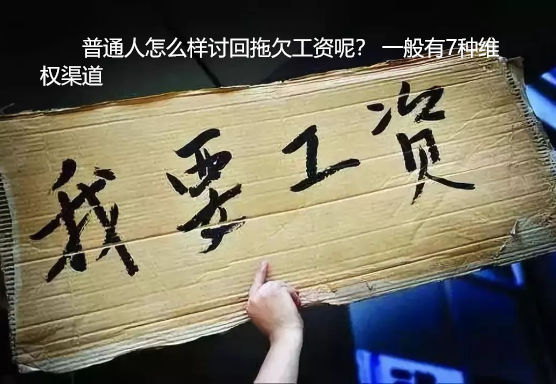 普通人怎么样讨回拖欠工资呢？ 一般有7种维
权渠道
我要工资